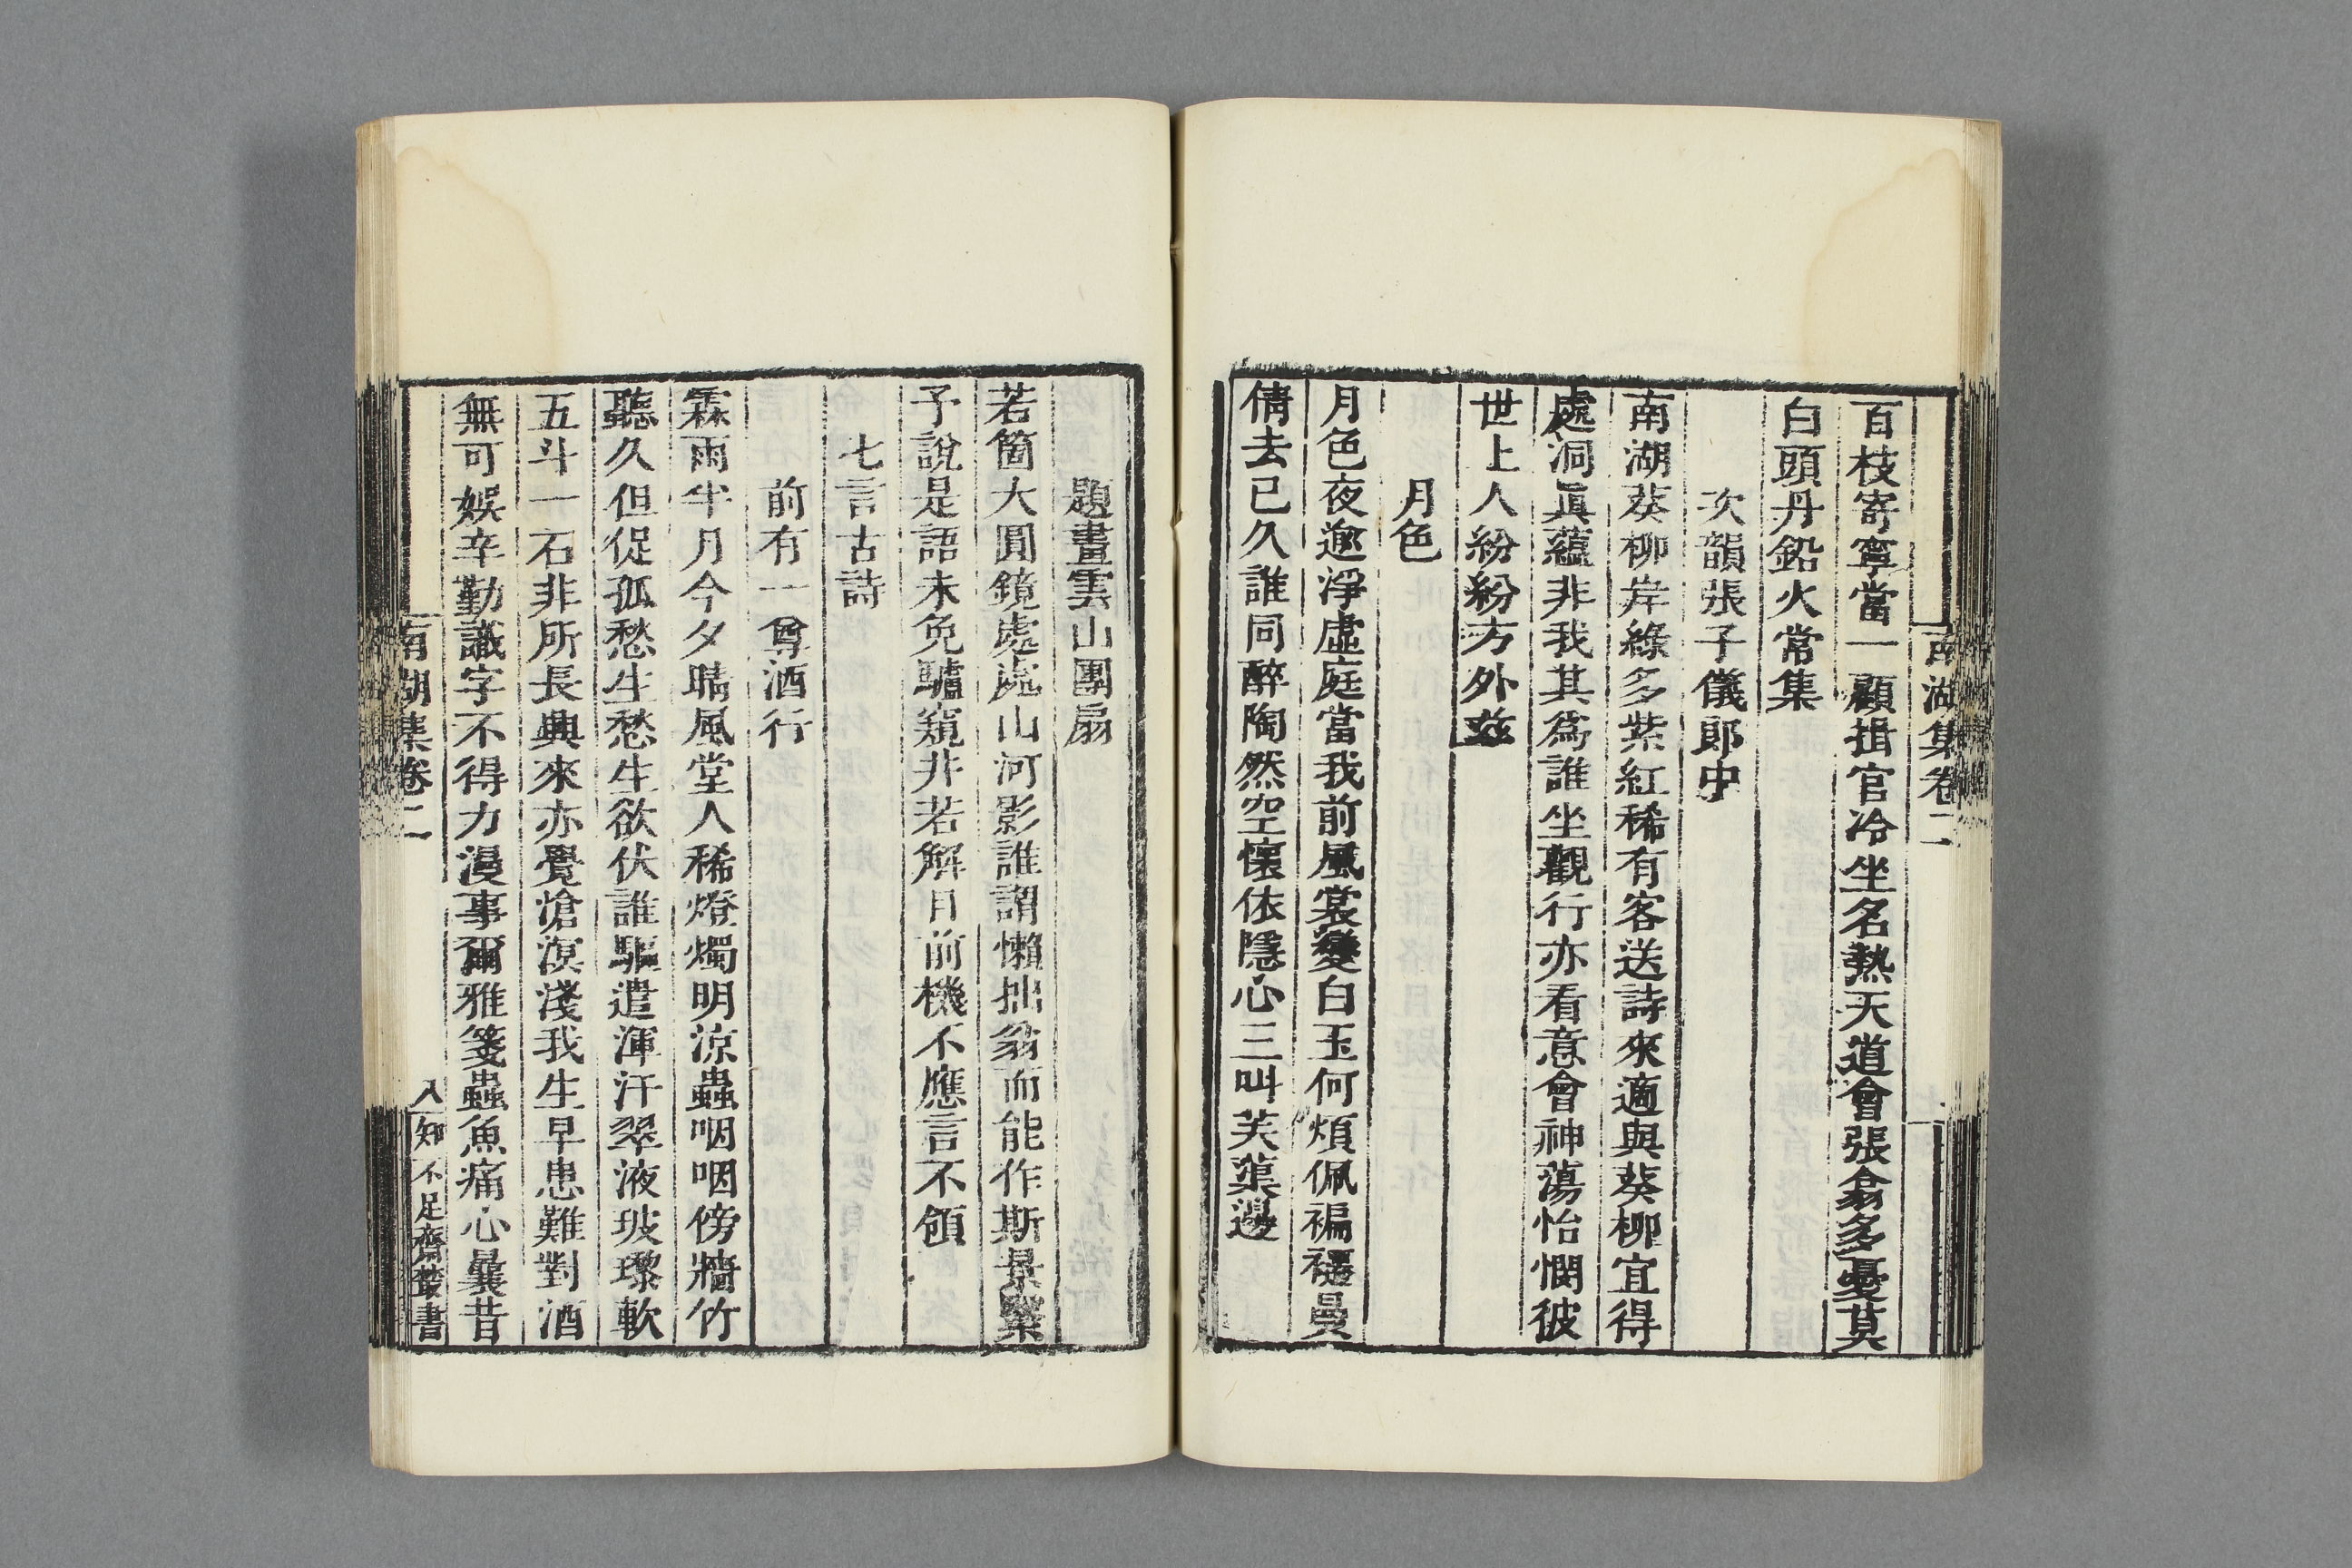 南湖集卷二
百枝寄寧當一顧揖官冷坐名熱天道會張翕多憂莫
白頭丹鉛火常集
次韻張子儀郎中
南湖葵柳岸綠多紫紅稀有客送詩來適與葵柳宜得
處洞眞蘊非我其爲誰坐觀行亦看意會神蕩怡憫彼
世上人紛紛方外玆
月色
月色夜逾淨虛庭當我前風裳變白玉何煩佩褊褼曼
倩去已久誰同醉陶然空懷依隱心三叫芙蕖邊
題畫雲山團扇
若箇大圓鏡處處山河影誰謂懶拙翁而能作斯景槃
予說是語未免驢窺井若解目前機不應言不領
七言古詩
前有一尊酒行
霖雨半月今夕晴風堂人稀燈燭明涼蟲咽咽傍牆竹
聽久但促孤愁生愁生欲伏誰驅遣渾汗翠液玻瓈軟
五斗一石非所長興來亦覺滄溟淺我生早患難對酒
無可娛辛勤識字不得力漫事爾雅箋蟲魚痛心曩昔
南湖集卷二
入 知不足齋叢書